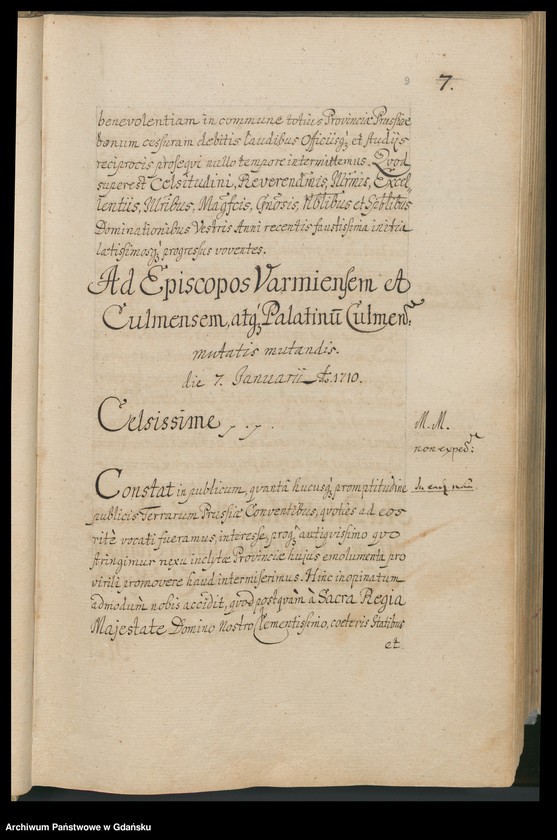 9 7.
benevolentiam in commune totius Provinciæ Prussiæ
bonum cessuram debitis laudibus Officijsq; et studijs
reciprocis prosequi nullo tempore intermittemus. Qvod
superest Celsitudini, Reverendmis, Illrmis, Excel
lentiis, Illribus, Magfcis, Gnosis, Nblibus et Spblibus
Dominationibus Vestris Anni recentis faustissima initia
lætissimosq; progressus voventes.
Ad Episcopos Varmiensem et
Culmensem, atq; Palatinū Culmens.
mutatis mutandis.
die 7. Januarii Ao. 1710.
Celsissime
M. M.
non exped:
Constat in publicum, qvantâ hucusq; promptitudine
publicis Terrarum Prussiæ Conventibus, qvoties ad eos
ritè vocati fueramus, interesse, proq; antiqvissimo qvo
stringimur nexu inclytæ Provinciæ hujus emolumenta pro
virili promovere haud intermiserimus. Hinc inopinatum
admodùm nobis accidit, qvod postqvàm à Sacra Regia
Majestate Domino Nostro Clementissimo, cœteris Statibus
et
Archiwum Państwowe w Gdańsku